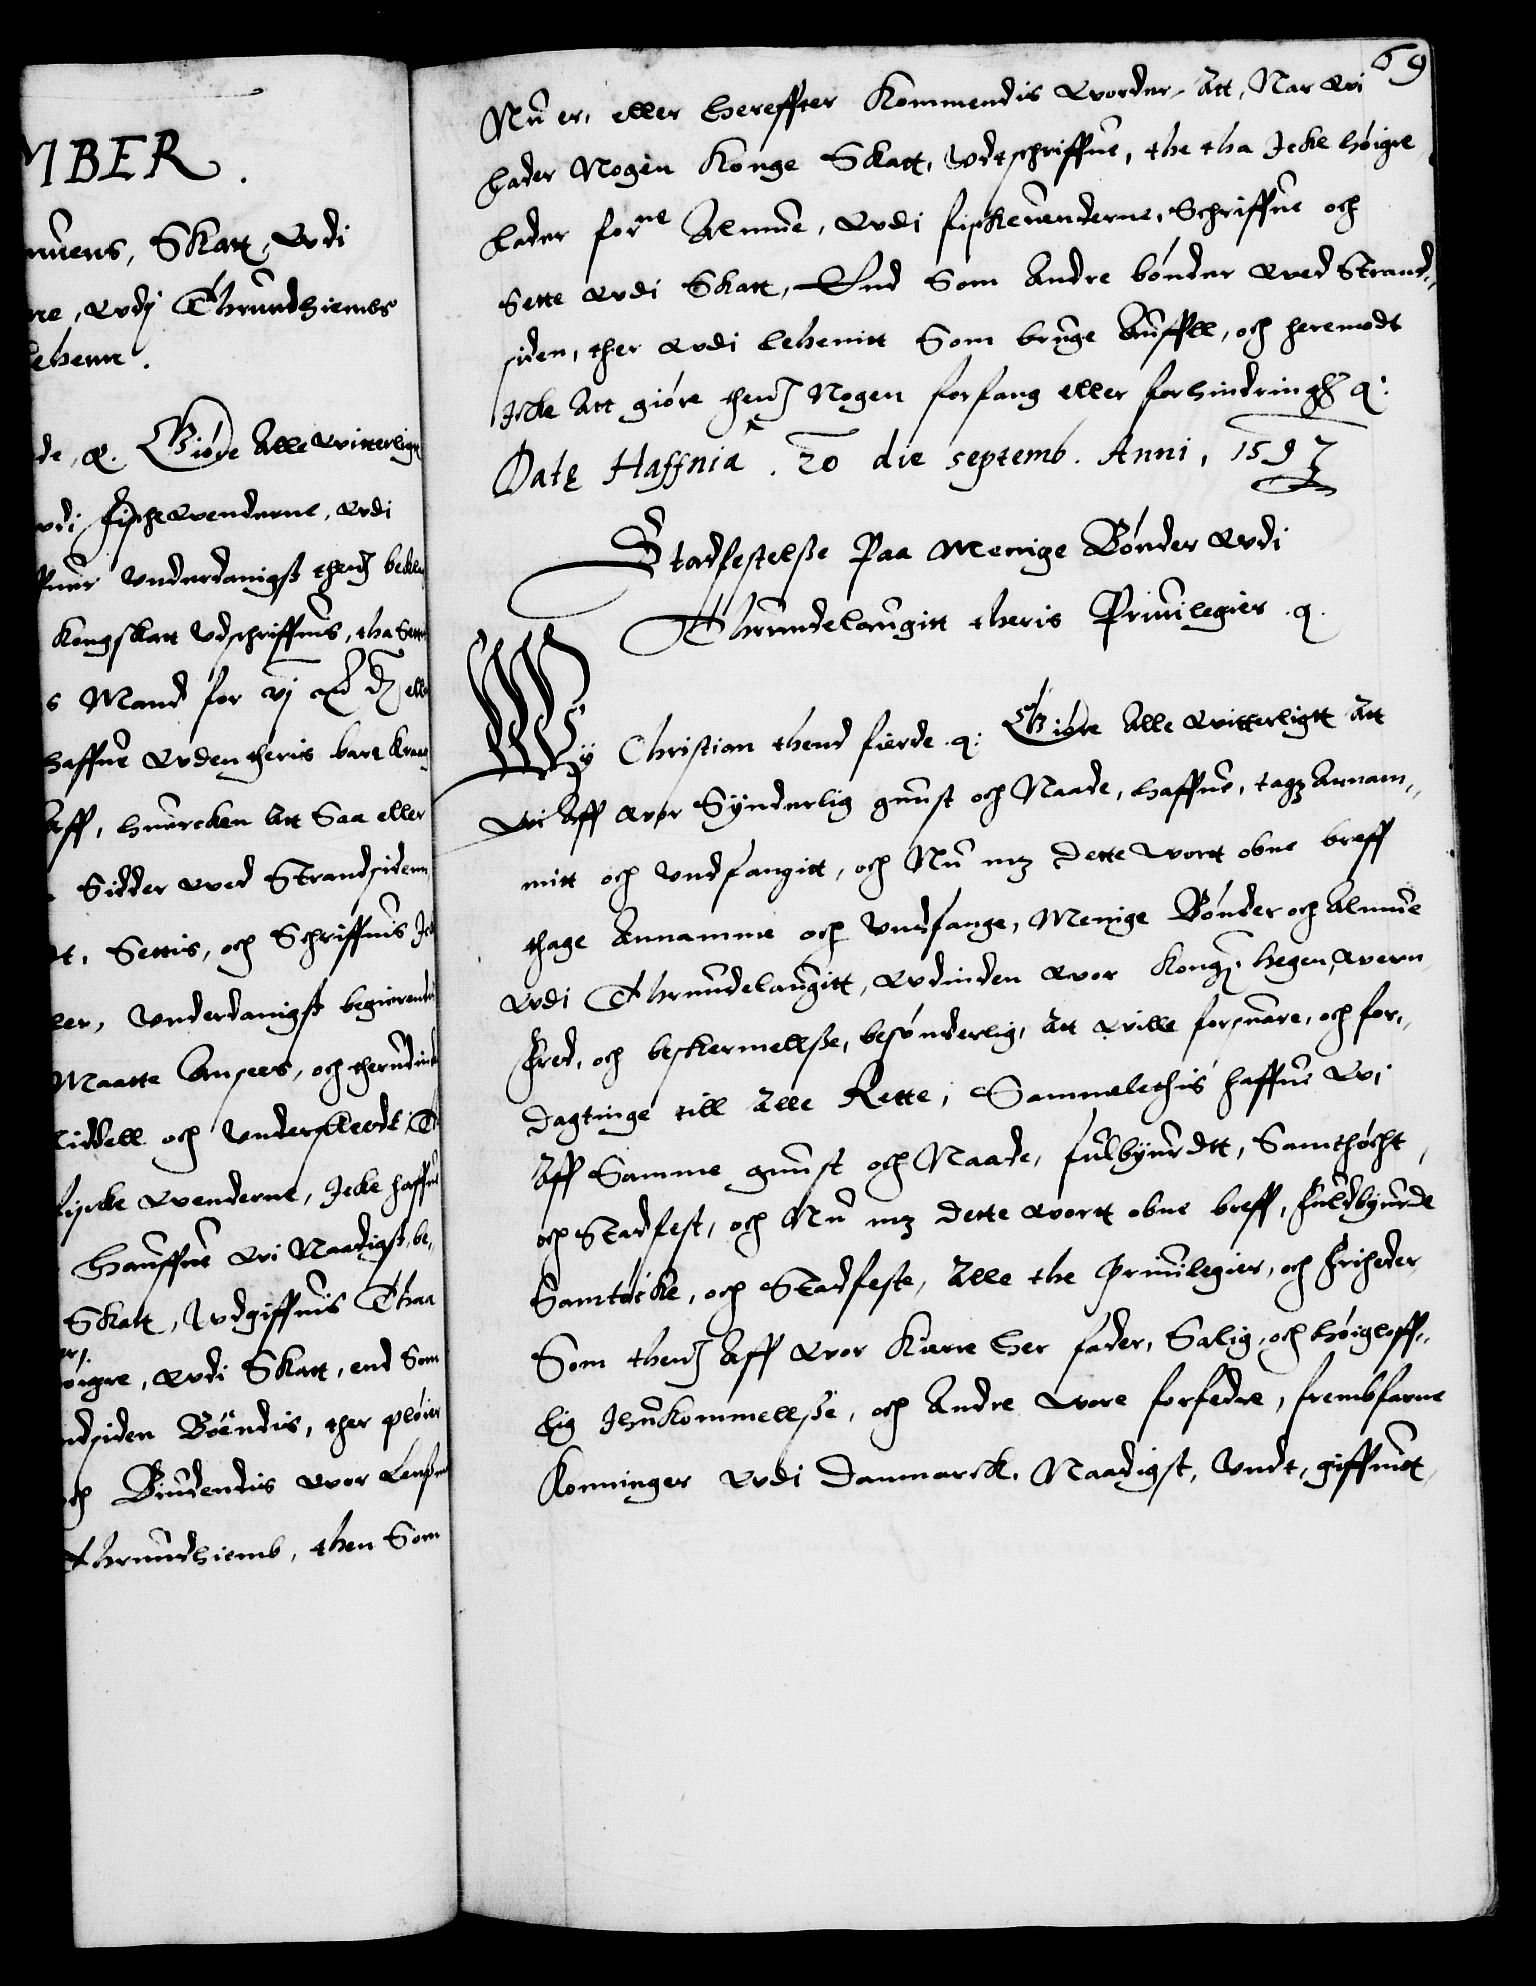 MBER.
nuens, Skatt, vdi
re, vdj Thrundhiembs
Lehenn.
de, &. Giöre Alle witterligt
vdi fischewerderne, vdi
Kongskatt Udschriffuis, tha Sette
s Mand for vj
haffue vden theris bare
Aff, huercken Att Saa eller
Sidder wed Strandsidenn
Settis, och Schriffuis Jc
ler, Underdanigst begierendis
Maatte Ansees, och therudind
iddell och Underskeedt, Th
fyske werderne, Jcke haffu
Haffue wi Naadigst, be,,
Skatt, Udgiffuis Thaa
öigre, vdi Skatt, end Som
ndsiden Böendis, ther plöier
ch Biudendis wor Lensm
Thrundhiemb, then Som
69
Nu er, eller hereffter Kommendis Vorder, Att, Nar wi
Lader Nogen Konge Skatt, Udtschriffue, the tha Jcke höigre
Lader forne Almue, vdi fiskeuerderne, Schriffue och
Sette vdi Skatt, End Som Andre bönder wed Strand,,
siden, ther vdi Lehenitt Som bruge Auffell, och heremodt
Jcke Att giöre thenn̄ Nogen forfang eller forhindringh &:
Datę Haffnia. 20 die septemb. Anni, 1597
Stadfestelsse Paa Menige Bönder vdi
Thrundelaugitt theris Priuilegier &.
Wÿ Christian thend fierde &: Giöre Alle witterligtt Att
wi Aff vor Sÿnderlig gunst och Naade, haffue, tagz Annam,,
mitt och Undfangitt, och Nu mz dette wort obne breff
thage Annamme och Undfange, Menige Bönder och Almue
vdi Thrundelaugitt, vdinden vor Kong: hegen, wern
Fred, och beskermellsse, besönderlig, Att wille forsuare, och for,,
dagtinge till Alle Rette, Sammelethis haffue wi
Aff Samme gunst och Naade, fulbÿurdtt, Samthöcht,
och Stadfest, och Nu mz dette wortt obne breff, fuldbÿurde
Samtöcke, och Stadfeste, Alle the Priuilegier, och Friheder
Som thenn̄ Aff vor Kierre Her fader, Salig, och höigloff,,
lig Jhukommellsse, och Andre wore forfedre, frembfarne
Konninger vdi Danmarck, Naadigst, Undt, giffuitt,